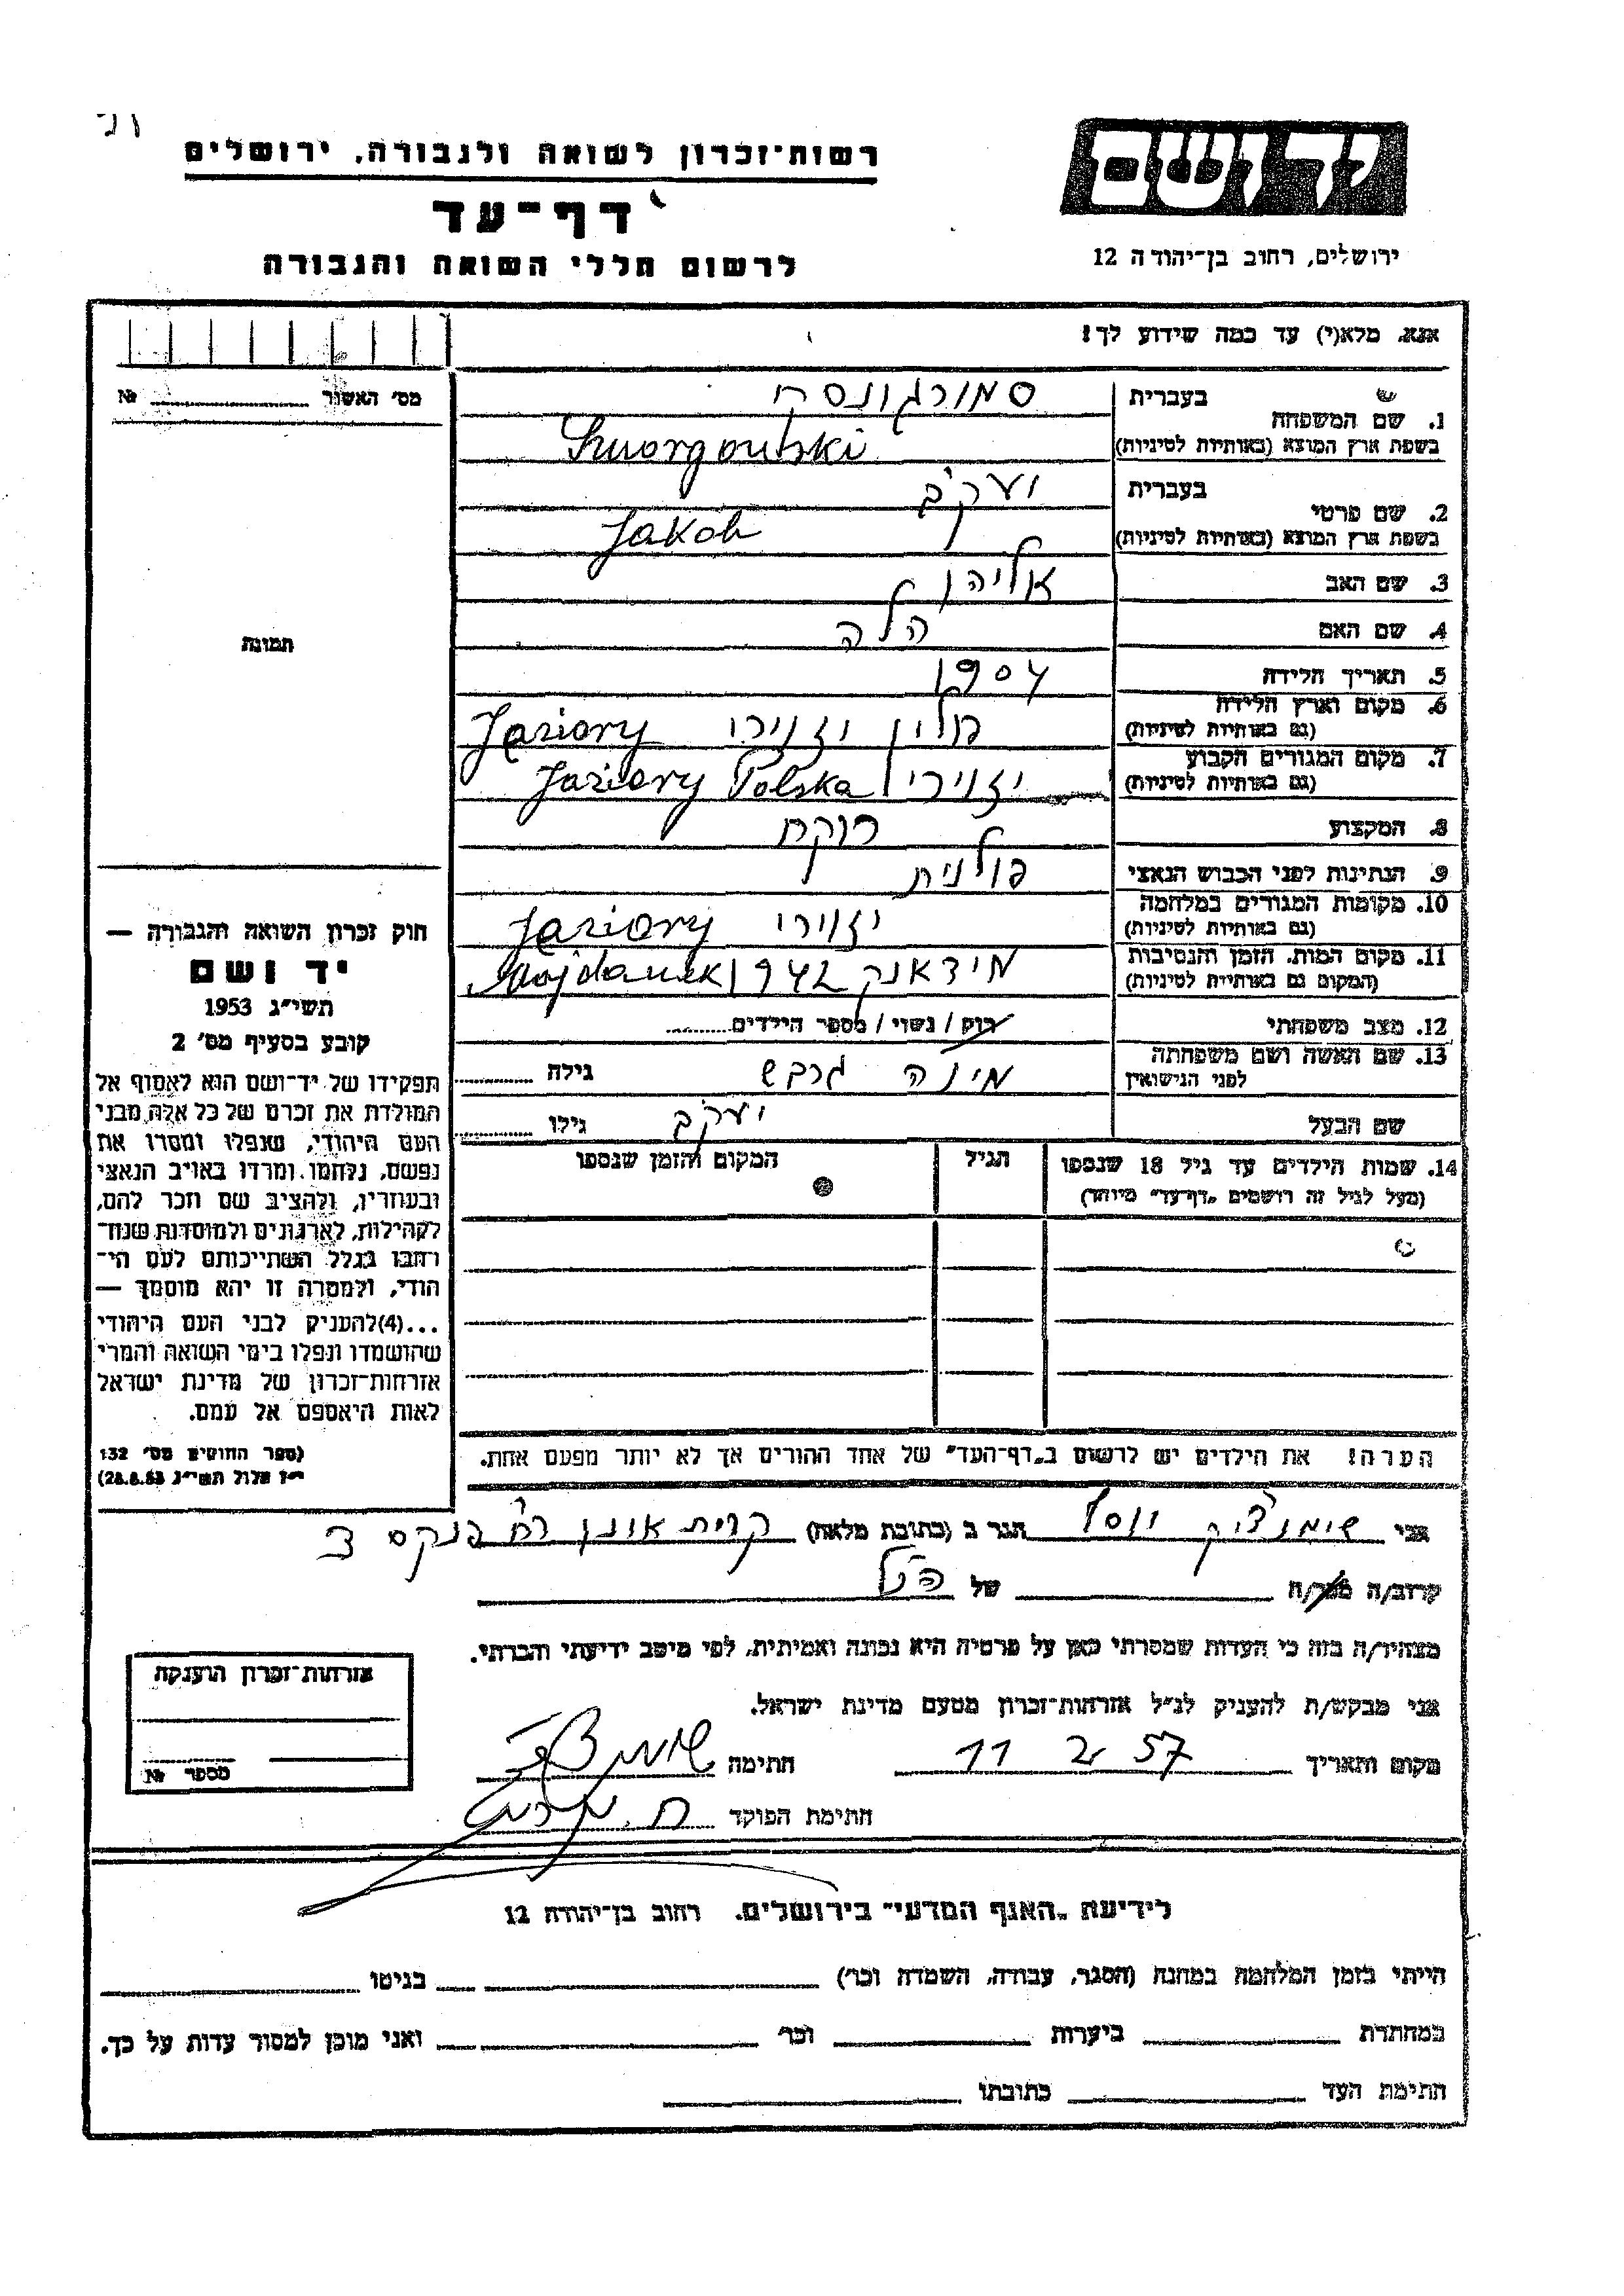 רשות־זכרון לשואה ולגבורה, ירושלים
יד ושם
דף־עד
לרשום חללי השואה והגבורה
ירושלים, רחוב בן־יהודה 12
אנא, מלא(י) עד כמה שידוע לך!
מס' האשור № 
תמונה
1. שם המשפחה
בעברית
בשפת ארץ המוצא (באותיות לטיניות)
Smorgonski
2. שם פרטי
בעברית יעקב
בשפת ארץ המוצא (באותיות לטיניות) Jakob
3. שם האב אליהו
4. שם האם הלה
5. תאריך הלידה 1904
6. מקום וארץ הלידה
(גם באותיות לטיניות) פולין יזיורי Jeziory
7. מקום המגורים הקבוע
(גם באותיות לטיניות) יזיורי Jeziory Polska
8. המקצוע רוקח
9. הנתינות לפני הכבוש הנאצי פולנית
10. מקומות המגורים במלחמה
(גם באותיות לטיניות) יזיורי Jeziory
11. מקום המות, הזמן והנסיבות
(המקום גם באותיות לטיניות) מידאנק 1942 Majdanek
12. מצב משפחתי רוק / נשוי / מספר הילדים
13. שם האשה ושם משפחתה
לפני הנישואין מינה גרבש גילה
שם הבעל יעקב גילו
14. שמות הילדים עד גיל 18 שנספו
(מעל לגיל זה רושמים „דף־עד" מיוחד)
הגיל
המקום והזמן שנספו
הערה! את הילדים יש לרשום ב„דף־העד" של אחד ההורים אך לא יותר מפעם אחת.
חוק זכרון השואה והגבורה —
יד ושם
תשי"ג 1953
קובע בסעיף מס' 2
תפקידו של יד־ושם הוא לאסוף אל
המולדת את זכרם של כל אלה מבני
העם היהודי, שנפלו ומסרו את
נפשם, נלחמו ומרדו באויב הנאצי
ובעוזריו, ולהציב שם וזכר להם,
לקהילות, לארגונים ולמוסדות שנח־
רבו בגלל השתייכותם לעם הי־
הודי, ולמטרה זו יהא מוסמך —
...(4)להעניק לבני העם היהודי
שהושמדו ונפלו בימי השואה והמרי
אזרחות־זכרון של מדינת ישראל
לאות היאספם אל עמם.
(ספר החוקים מס' 132
י"ז אלול תשי"ג 28.8.53)
אני יוסף הגר ב (כתובת מלאה) קרית אונו רח' פנקס
קרוב/ה מכר/ה של הנ"ל
מצהיר/ה בזה כי העדות שמסרתי כאן על פרטיה היא נכונה ואמיתית, לפי מיטב ידיעתי והכרתי.
אני מבקש/ת להעניק לנ"ל אזרחות־זכרון מטעם מדינת ישראל.
מקום ותאריך 11 2 57 חתימה
חתימת הפוקד
אזרחות־זכרון הוענקה
מספר №
לידיעת „האגף המדעי" בירושלים. רחוב בן־יהודה 12
הייתי בזמן המלחמה במחנה (הסגר, עבודה, השמדה וכו') בגיטו
במחתרת ביערות וכו' ואני מוכן למסור עדות על כך.
חתימת העד כתובתו